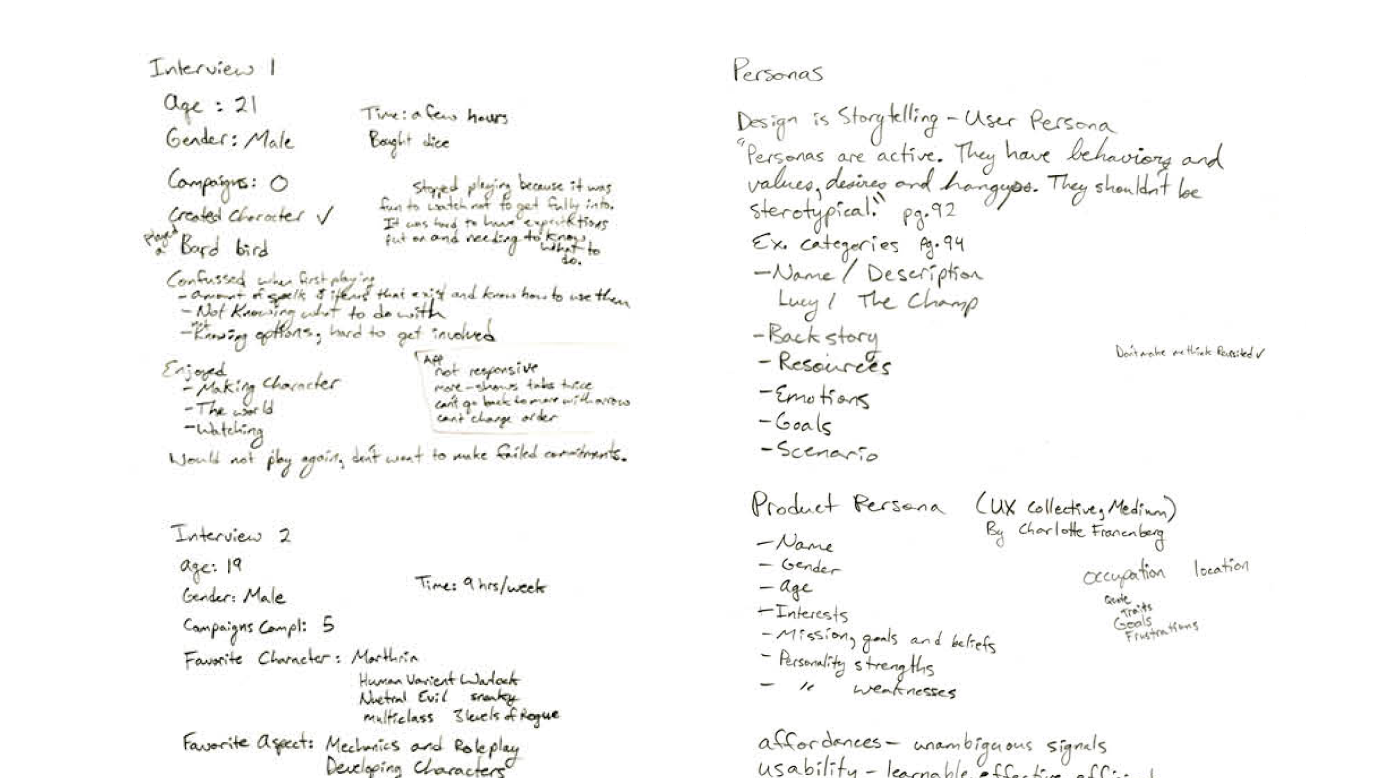 Interview 1
Age : 21
Gender: Male
Time: a few hours
Bought dice
Campaigns: 0
Created Character ✓
played a Bard bird
Stopped playing because it was
fun to watch not to get fully into.
It was hard to have expectations
put on and needing to know
what to
do.
Confussed when first playing
- amount of spells & items that exist and know how to use them
- Not Knowing what to do with
- not Knowing options, hard to get involved
Enjoyed
- Making Character
- The world
- Watching
App
not responsive
more - shows tabs twice
can't go back to more with arrow
cant change order
Would not play again, don't want to make failed commitments.
Interview 2
age: 19
Gender: Male
Time: 9 hrs/week
Campaigns Compl: 5
Favorite Character: Marthrin
Human Varient Warlock
Nuetral Evil sneaky
multiclass 3 levels of Rogue
Favorite Aspect: Mechanics and Roleplay
Developing Characters
Personas
Design is Storytelling - User Persona
"Personas are active. They have behaviors and
values, desires and hangups. They shouldn't be
sterotypical." pg. 92
Ex. categories pg. 94
- Name / Description
Lucy / The Champ
- Backstory
- Resources
- Emotions
- Goals
- Scenario
Don't make me think Revisited ✓
Product Persona (UX Collective, Medium)
By Charlotte Franenberg
- Name
- Gender
- Age
- Interests
- Mission, goals and beliefs
- Personality strengths
- " weaknesses
occupation location
Quote
Traits
Goals
Frustrations
affordances - unambiguous signals
usability - learnable, effective,